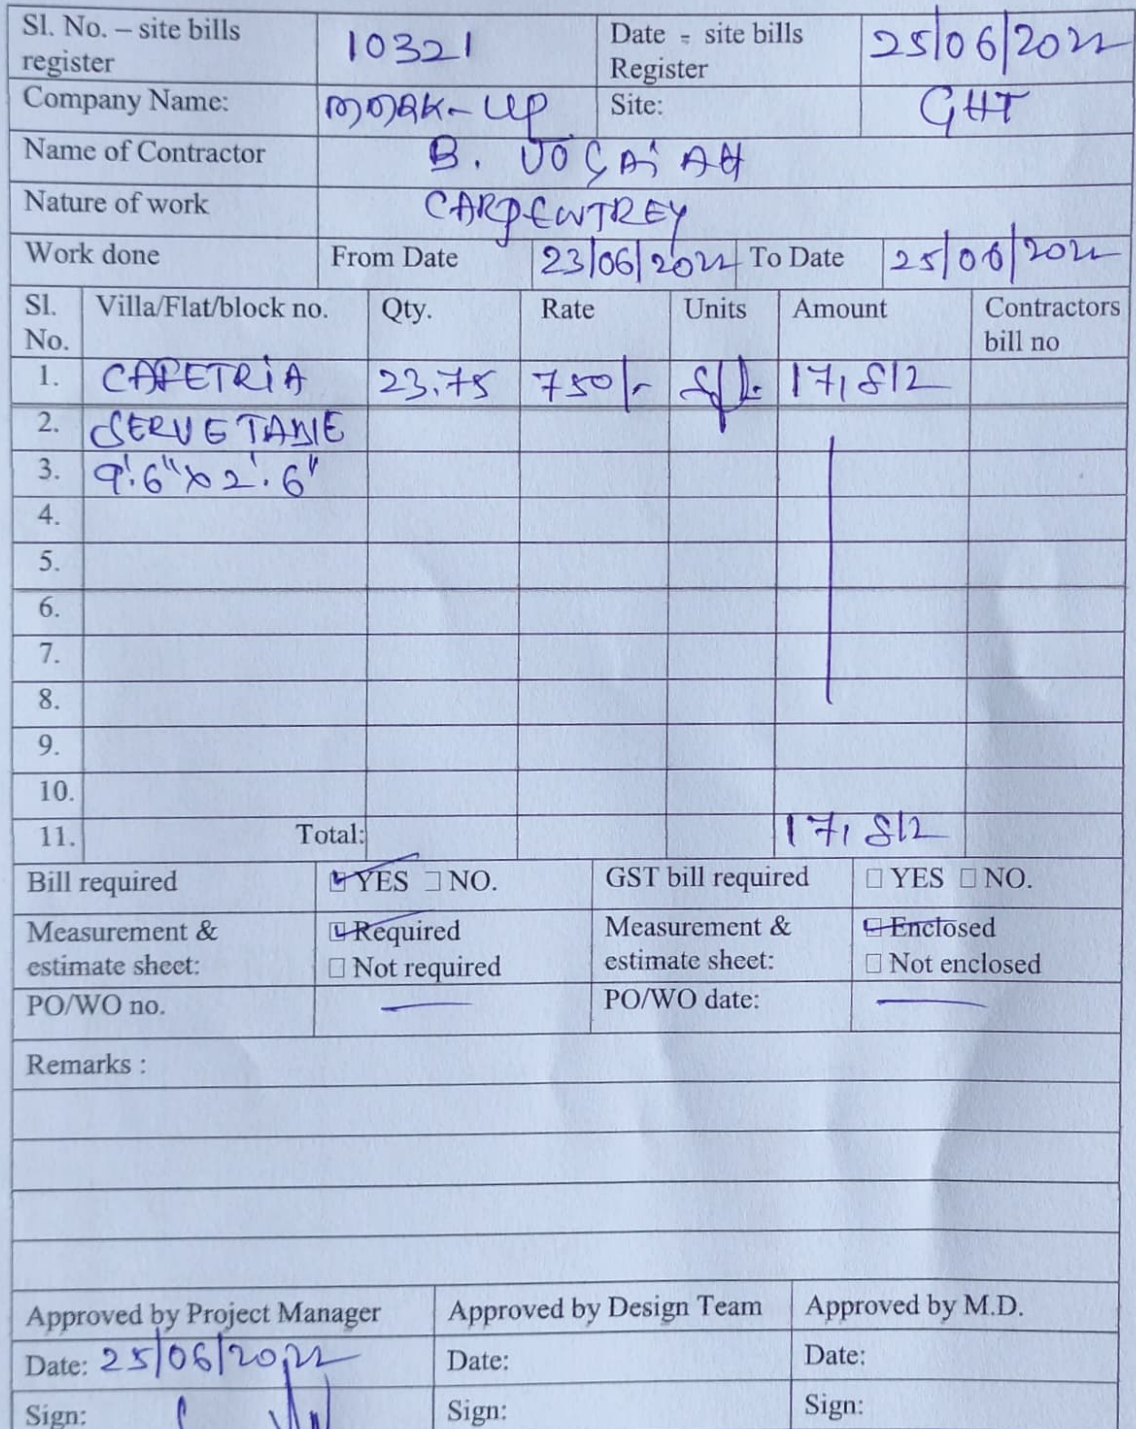 Sl. No. – site bills register 10321 Date - site bills Register 25/06/2022
Company Name: MMRK-UP Site: GHT
Name of Contractor B. JOGAiAH
Nature of work CARPENTREY
Work done From Date 23/06/2022 To Date 25/06/2022
Sl. No. Villa/Flat/block no. Qty. Rate Units Amount Contractors bill no
1. CAFETRiA 23.75 750/- S/ft. 17,812
2. SERVE TABLE
3. 9'.6"x2'.6"
4.
5.
6.
7.
8.
9.
10.
11. Total: 17,812
Bill required YES NO. GST bill required YES NO.
Measurement & estimate sheet: Required Not required Measurement & estimate sheet: Enclosed Not enclosed
PO/WO no. — PO/WO date: —
Remarks :
Approved by Project Manager Approved by Design Team Approved by M.D.
Date: 25/06/2022 Date: Date:
Sign: Sign: Sign: